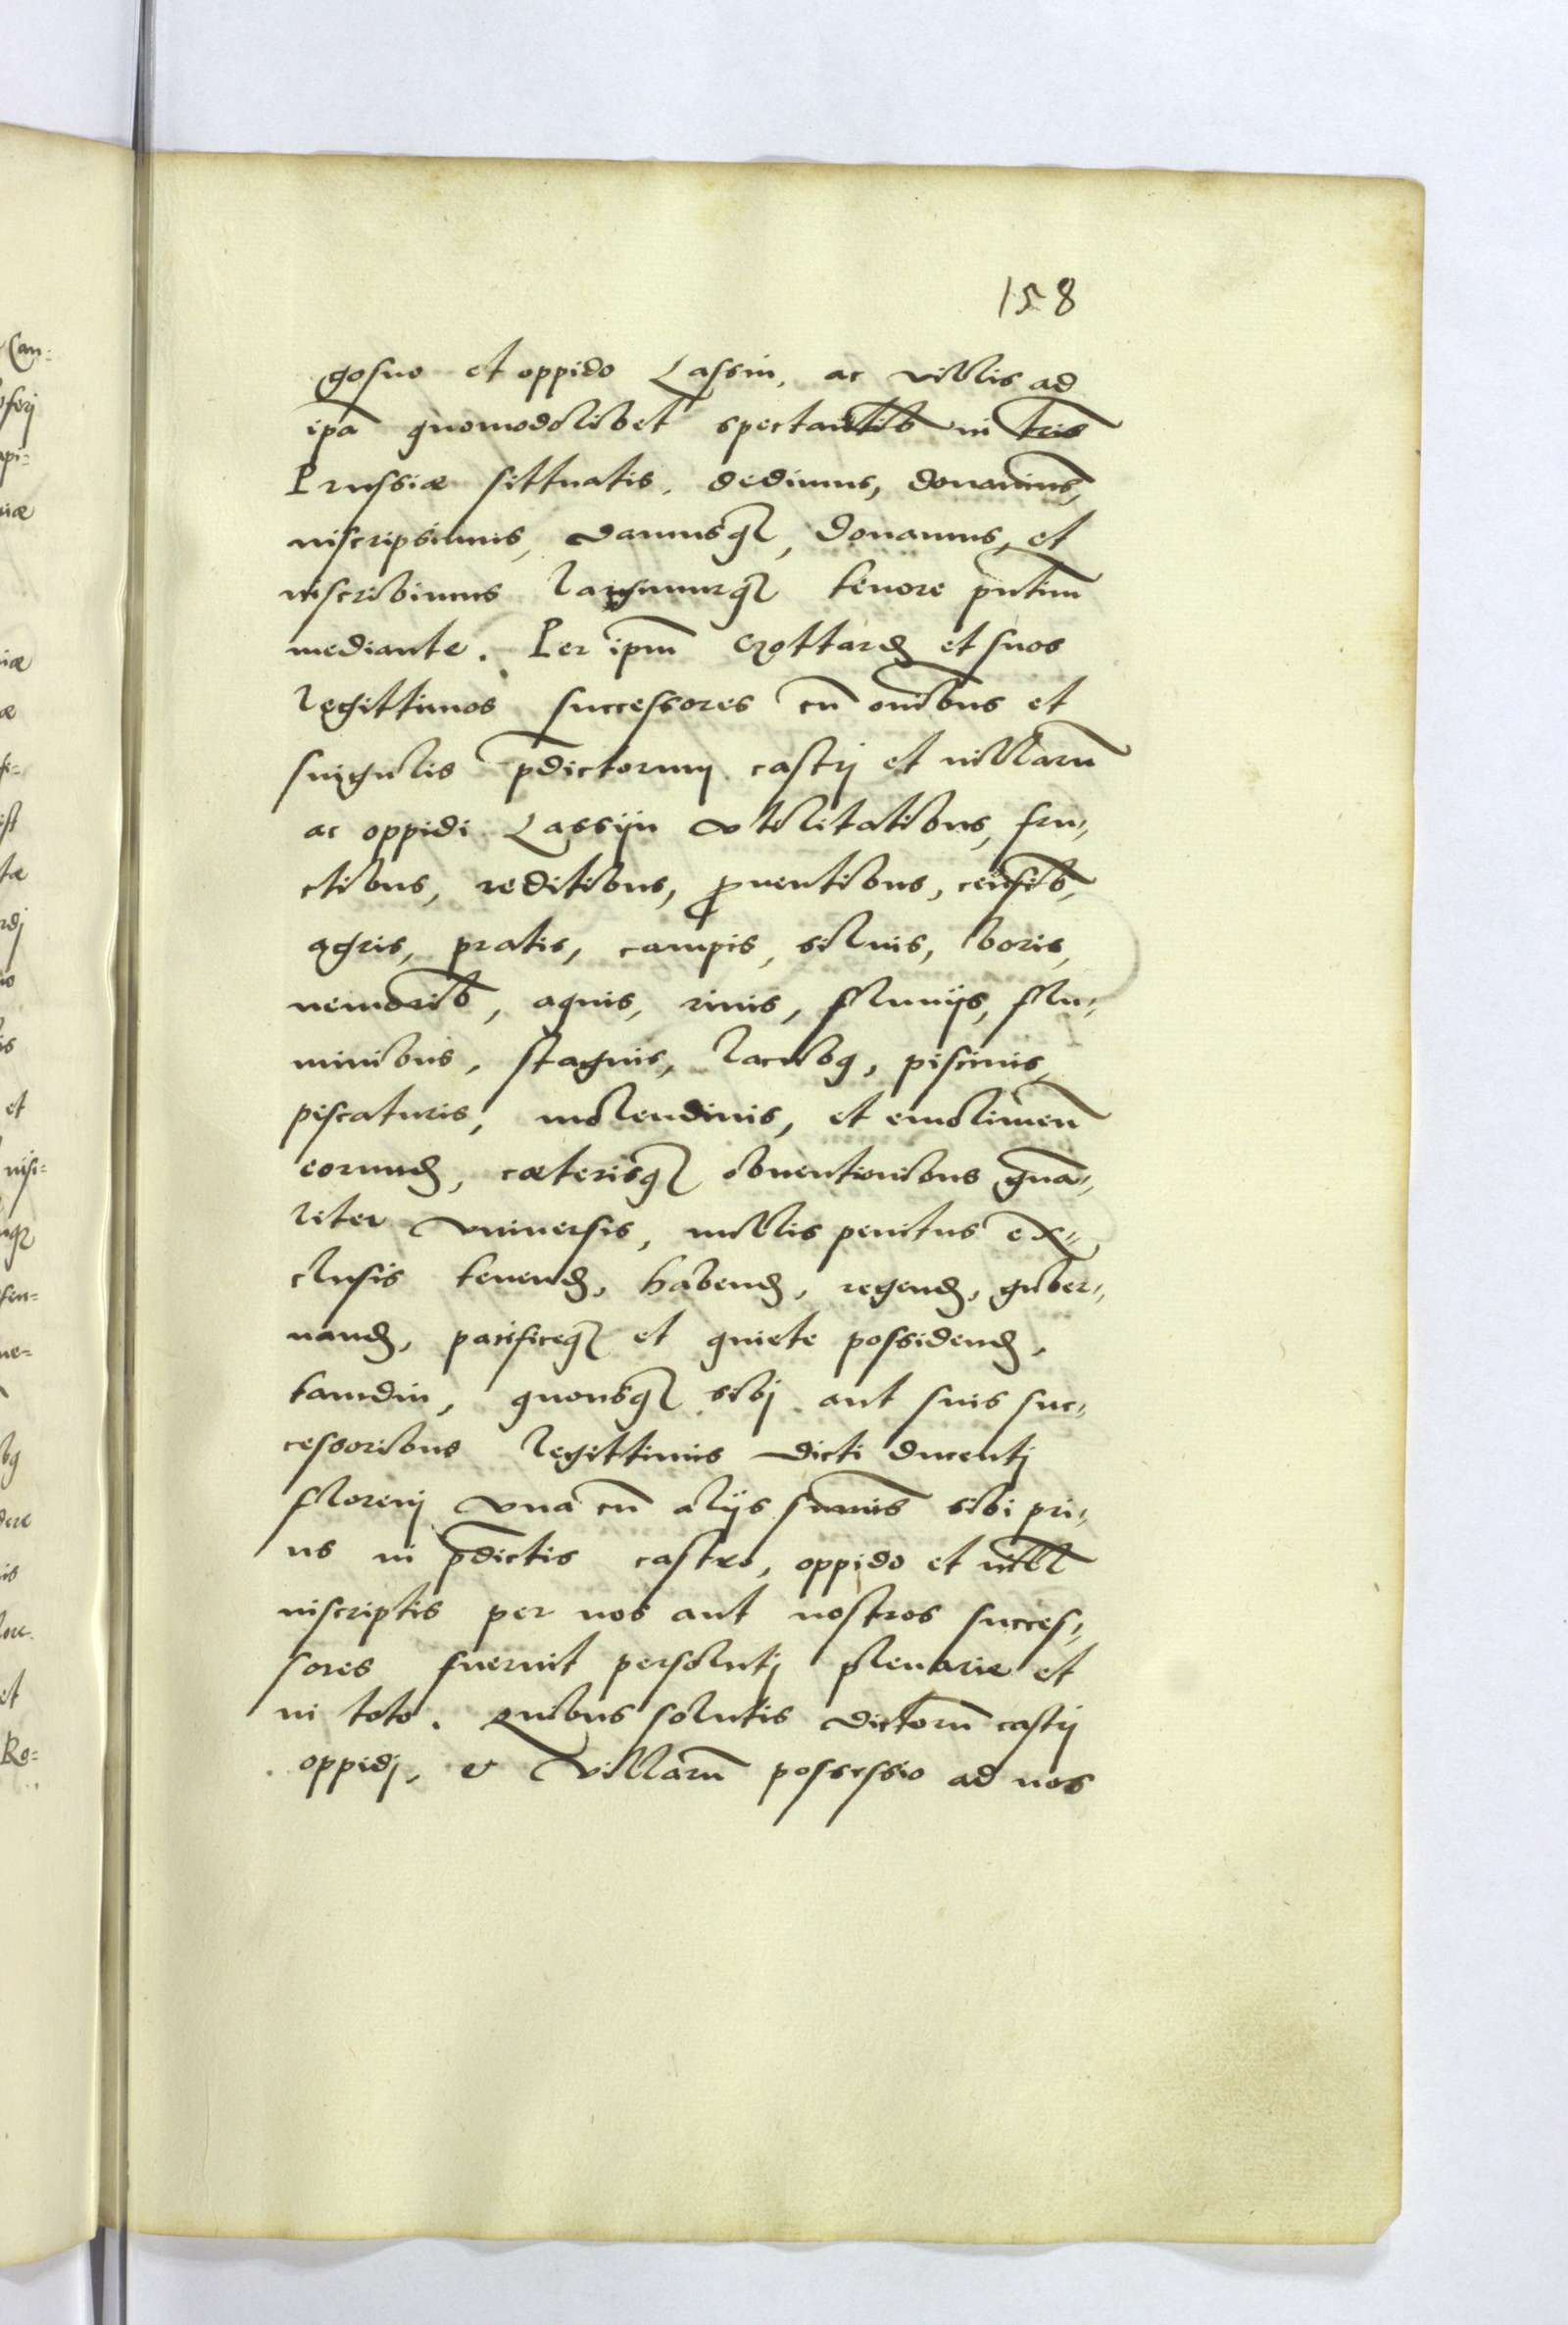 158
gosno et oppido Lassin, ac villis ad
ipã quomodolibet spectantib in tris
Prussiæ sittuatis, dedimus, donavimus,
inscripsimus, damusq, donamus, et
inscribimus largimurq tenore pñtium
mediante. Per ipm Czottard et suos
legittimos successores cũ omibus et
singulis p̄dictorum castrj et villarũ
ac oppidi Lassijn vtilitatibus, fru„
ctibus, reditibus, ꝓventibus, censib,
agris, pratis, campis, siluis, boris,
nemorib, aquis, rivis, fluuijs, flu„
minibus, stagnis, lacubq, piscinis,
piscaturis, molendinis, et emolimen̄
eorund, cæterisq obuentionibus gnã„
liter vniuersis, nullis penitus ex„
clusis tenend, habend, regend, guber„
nand, pacificeq et quiete possidend,
tamdiu, quousq sibj aut suis suc„
cessoribus legittimis dicti ducentj
florenj vna cũ alijs sum̃is sibi pri„
us in p̄dictis castro, oppido et vill
inscriptis per nos aut nostros succes„
sores fuerint persolutj plenarie et
in toto. Quibus solutis dictorũ castrj
oppidj, et villarũ possessio ad nos